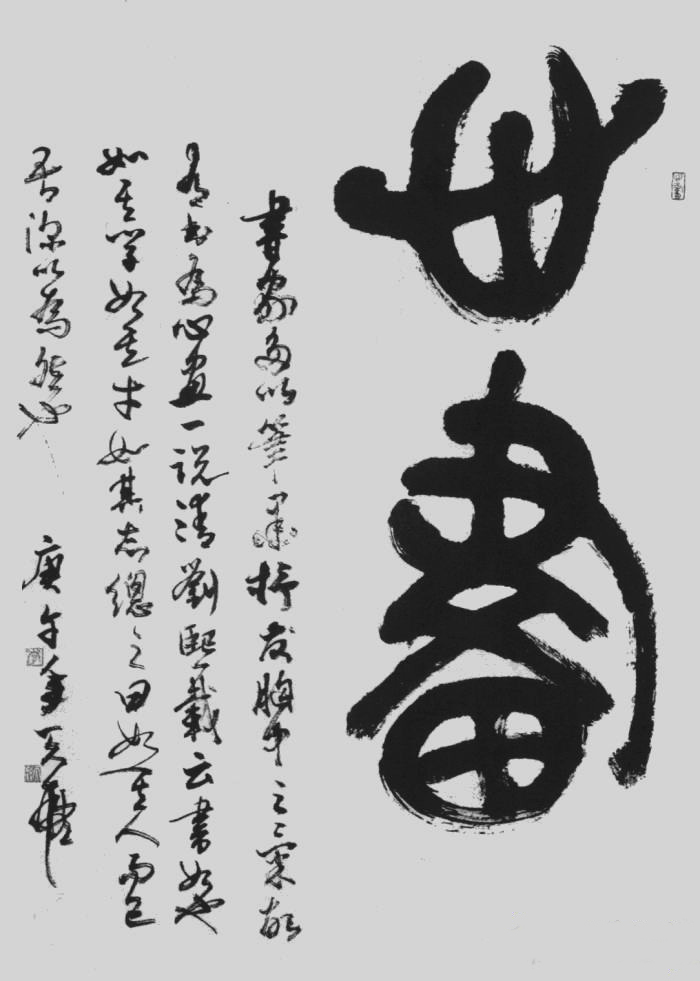 心畫
書家多以筆墨抒發胸中之故
有書為心畫一說清劉熙載云書如也
如其學如其才如其志總之曰如其人而已
吾深以為然也 庚午年